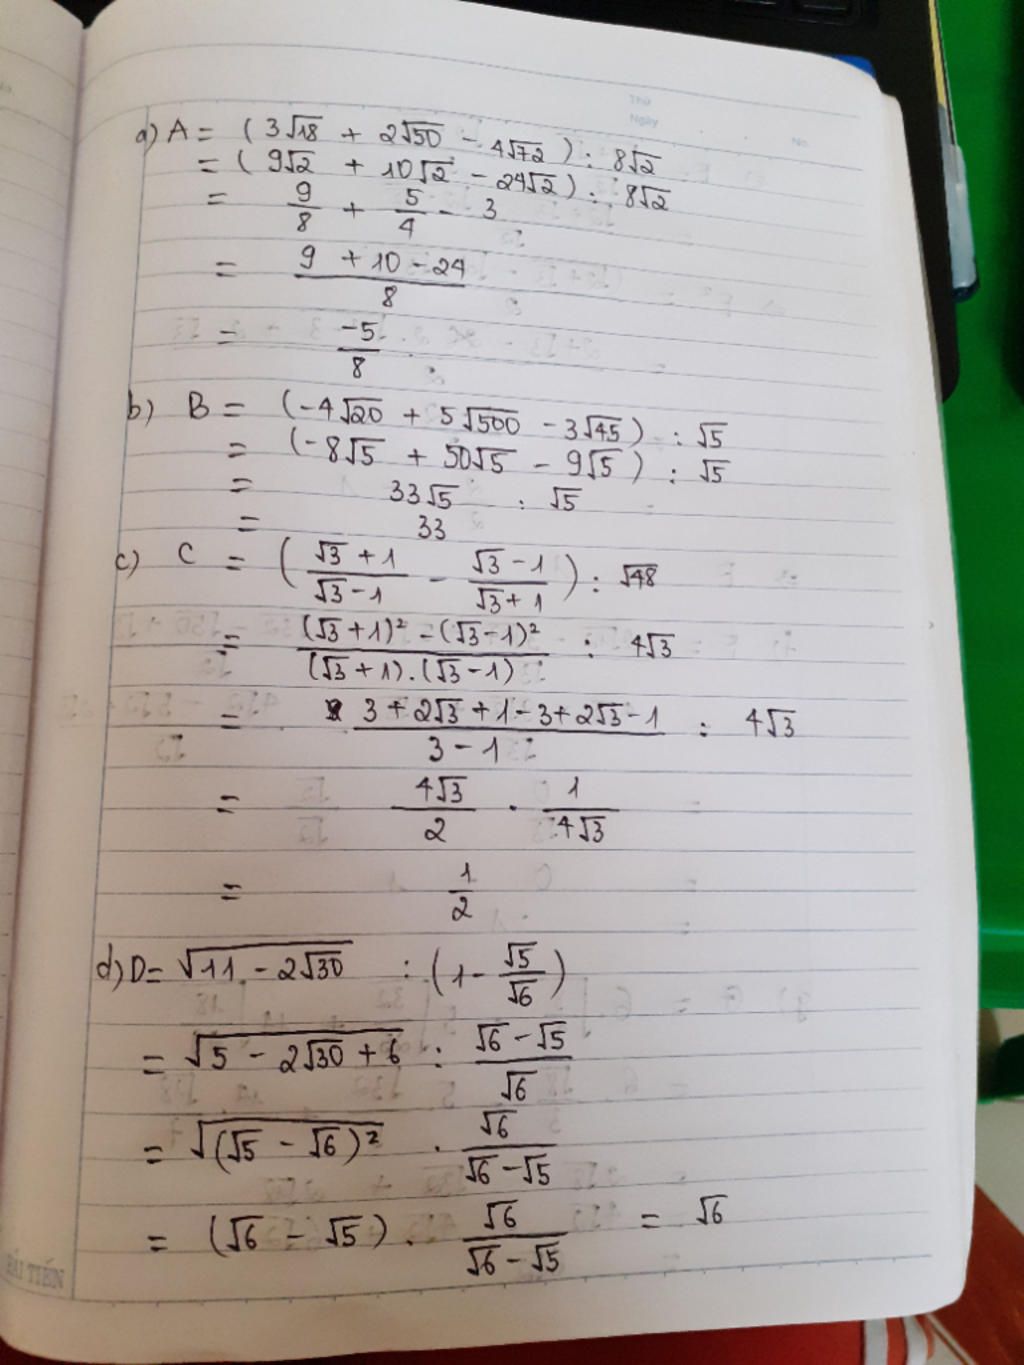 Thứ
Ngày
No.
a) A = (3√18 + 2√50 - 4√72) : 8√2
= (9√2 + 10√2 - 24√2) : 8√2
= 9/8 + 5/4 - 3
= (9 + 10 - 24)/8
= -5/8
b) B = (-4√20 + 5√500 - 3√45) : √5
= (-8√5 + 50√5 - 9√5) : √5
= 33√5 : √5
= 33
c) C = ((√3 + 1)/(√3 - 1) - (√3 - 1)/(√3 + 1)) : √48
= ((√3 + 1)² - (√3 - 1)²)/((√3 + 1).(√3 - 1)) : 4√3
= (3 + 2√3 + 1 - 3 + 2√3 - 1)/(3 - 1) : 4√3
= 4√3/2 . 1/4√3
= 1/2
d) D = √(11 - 2√30) : (1 - √5/√6)
= √(5 - 2√30 + 6) : (√6 - √5)/√6
= √((√5 - √6)²) . √6/(√6 - √5)
= (√6 - √5) . √6/(√6 - √5) = √6
HẢI TIẾN